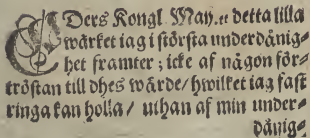 EDers Kongl. May.tt detta lilla
wärket iag i största underdånig⸗
het framter; icke af någon för⸗
tröstan till dhes wärde/ hwilket iag fast
ringa kan holla/ uthan af min under⸗
dånig⸗